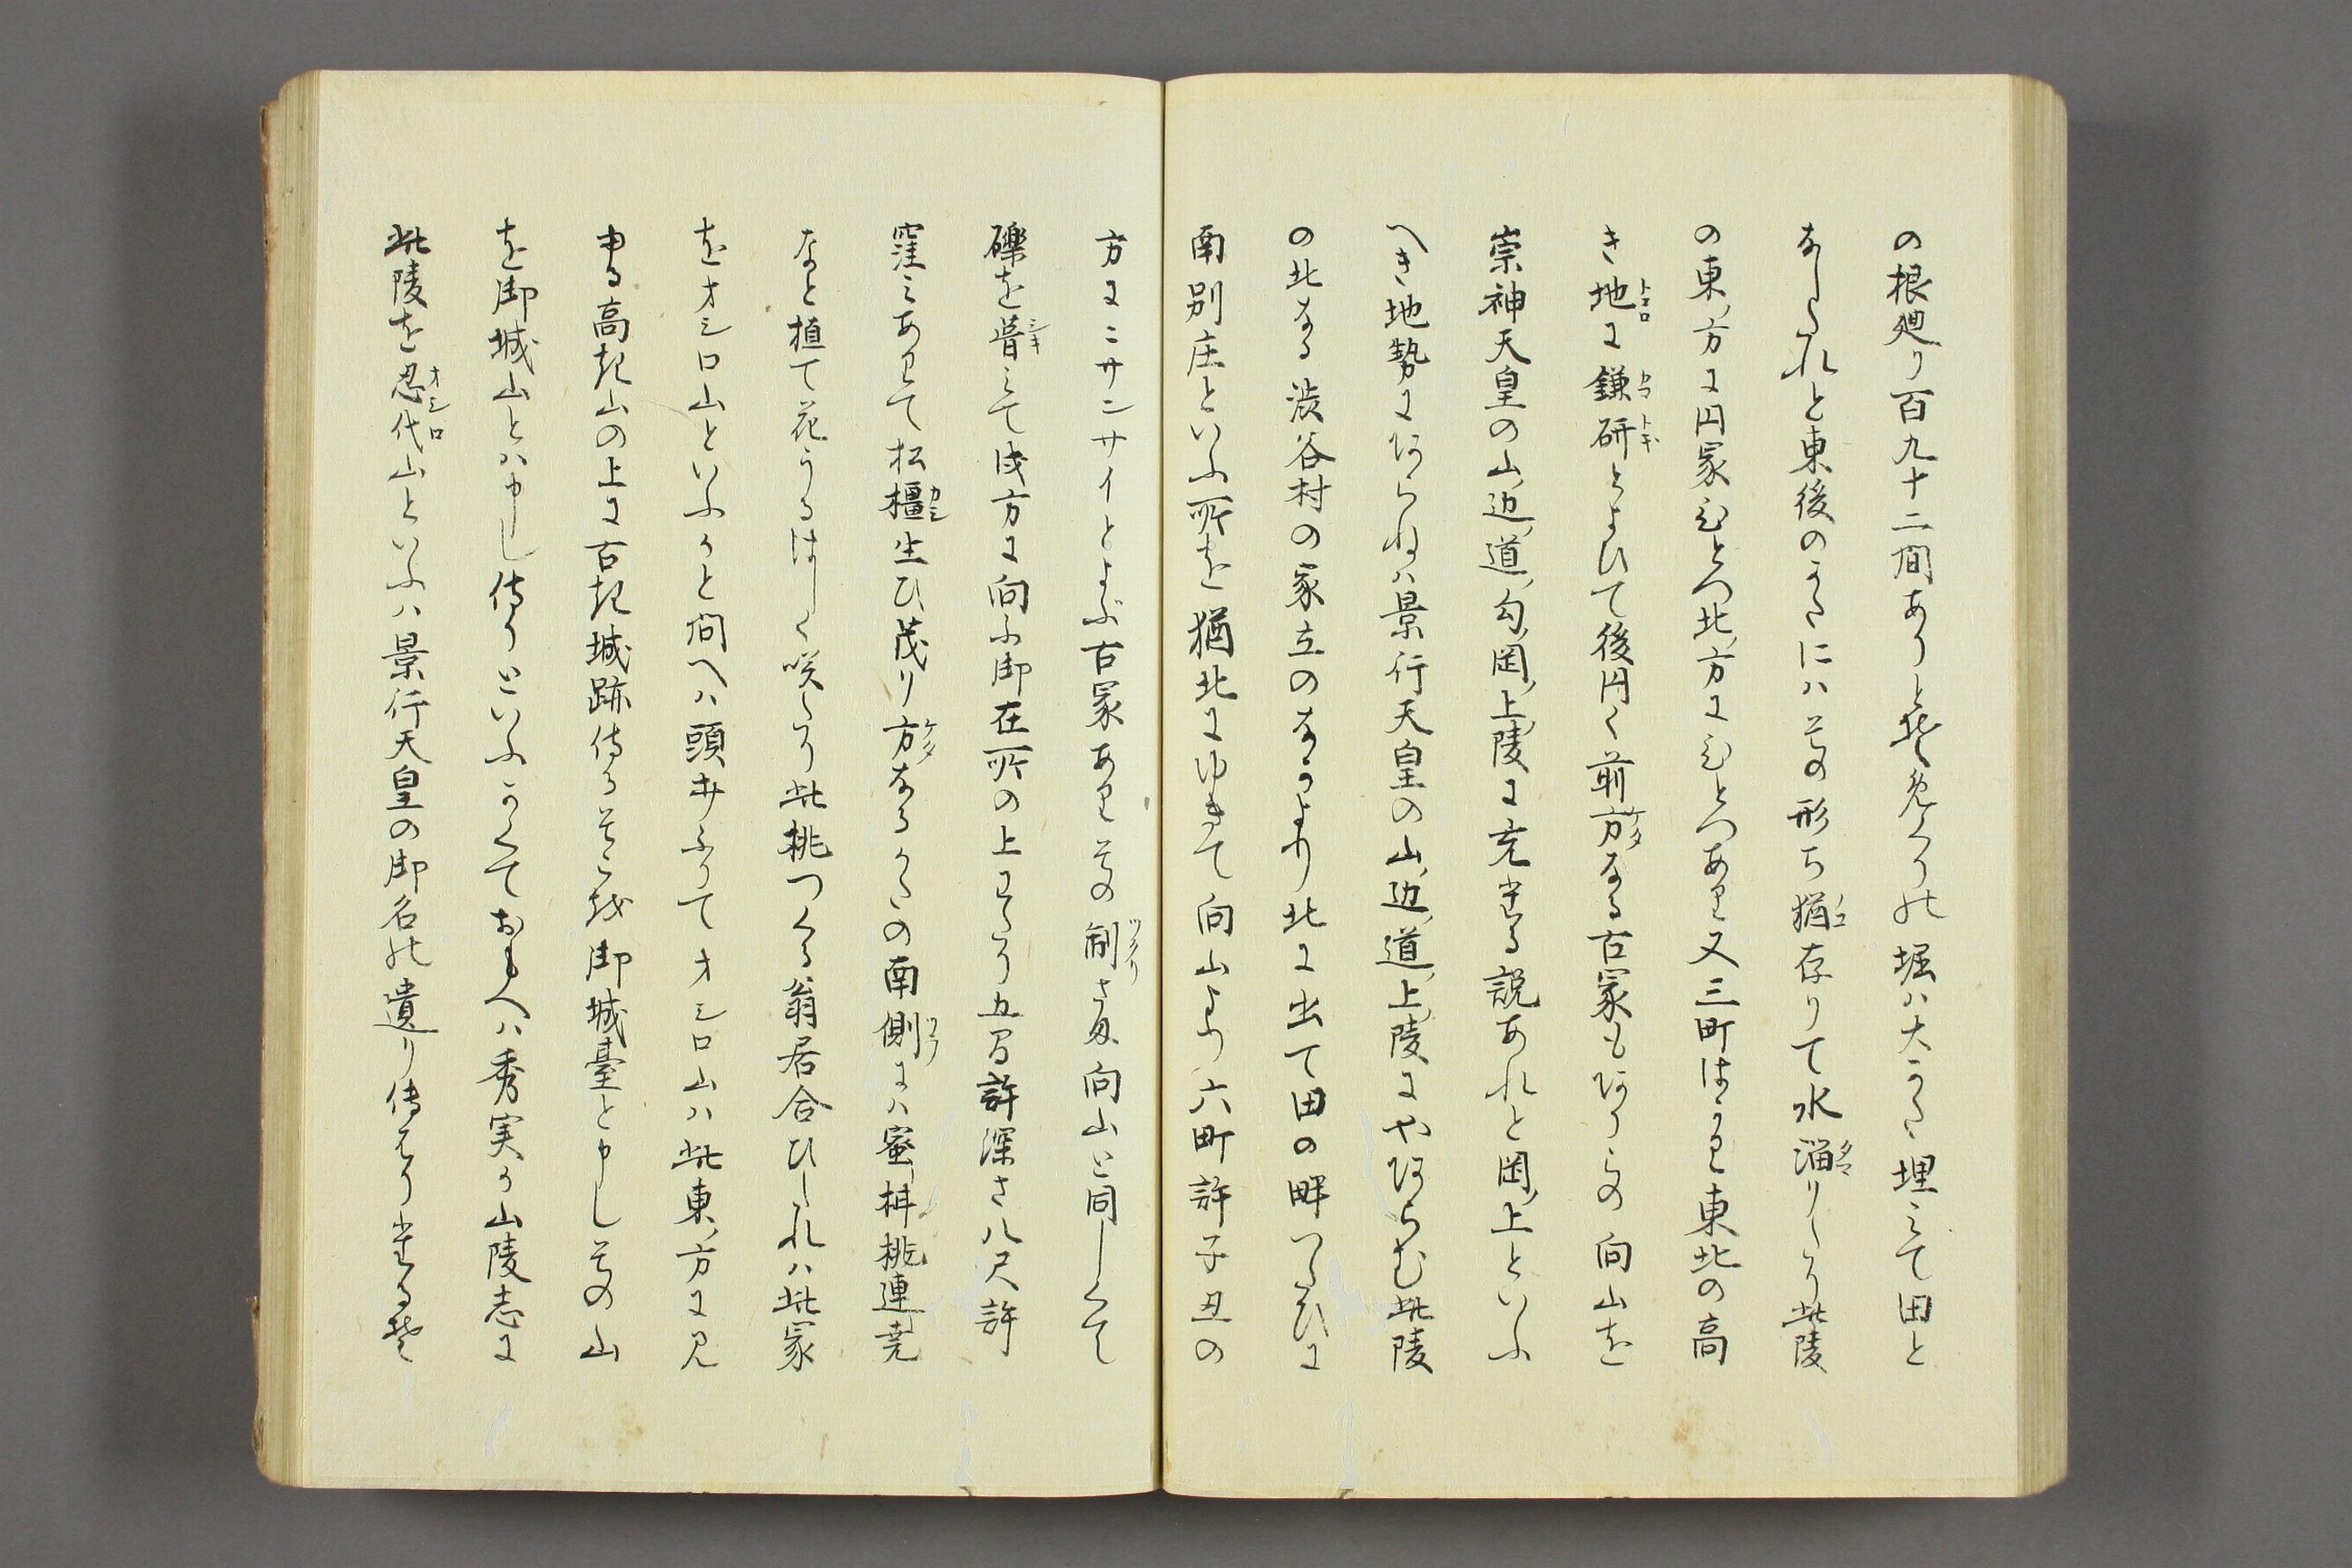 の根廻り百九十二間ありとぞめくりの堀ハ大かた埋ミて田と
なしたれと東後のかたにハ其形ち猶存りて水溜りたり此陵
の東ノ方に円冢ひとつ北ノ方にひとつあり又三町はかり東北の高
き地に鎌研とよひて後円く前方なる古冢もありその向山を
崇神天皇の山ノ辺ノ道ノ勾ノ岡ノ上ノ陵に充たる説あれと岡ノ上といふ
へき地勢にあらねハ景行天皇の山ノ辺ノ道ノ上ノ陵にやあらむ此陵
の北なる渋谷村の家立のなかより北に出て田の畔つたひに
南別庄といふ所を猶北にゆきて向山より六町許子丑の
方にニサンサイとよぶ古冢あり其制さま向山と同しくて
礫を葺ミて戌方に向ふ御在所の上わたり五間許深さ八尺許
窪ミありて松橿生ひ茂り方なるかたの南側にハ蜜柑桃連尭
なと植て花うるはしく咲たり此桃つくる翁居合ひたれハ此冢
をオシロ山といふかと問へハ頭ふりてオシロ山ハ此東ノ方に見
ゆる高き山の上に古き城跡侍るそこを御城臺と申し其山
を御城山とハ申し侍りといふかくておもへハ秀実か山陵志に
此陵を忍代山といふハ景行天皇の御名の遺り傳はりたるぞ